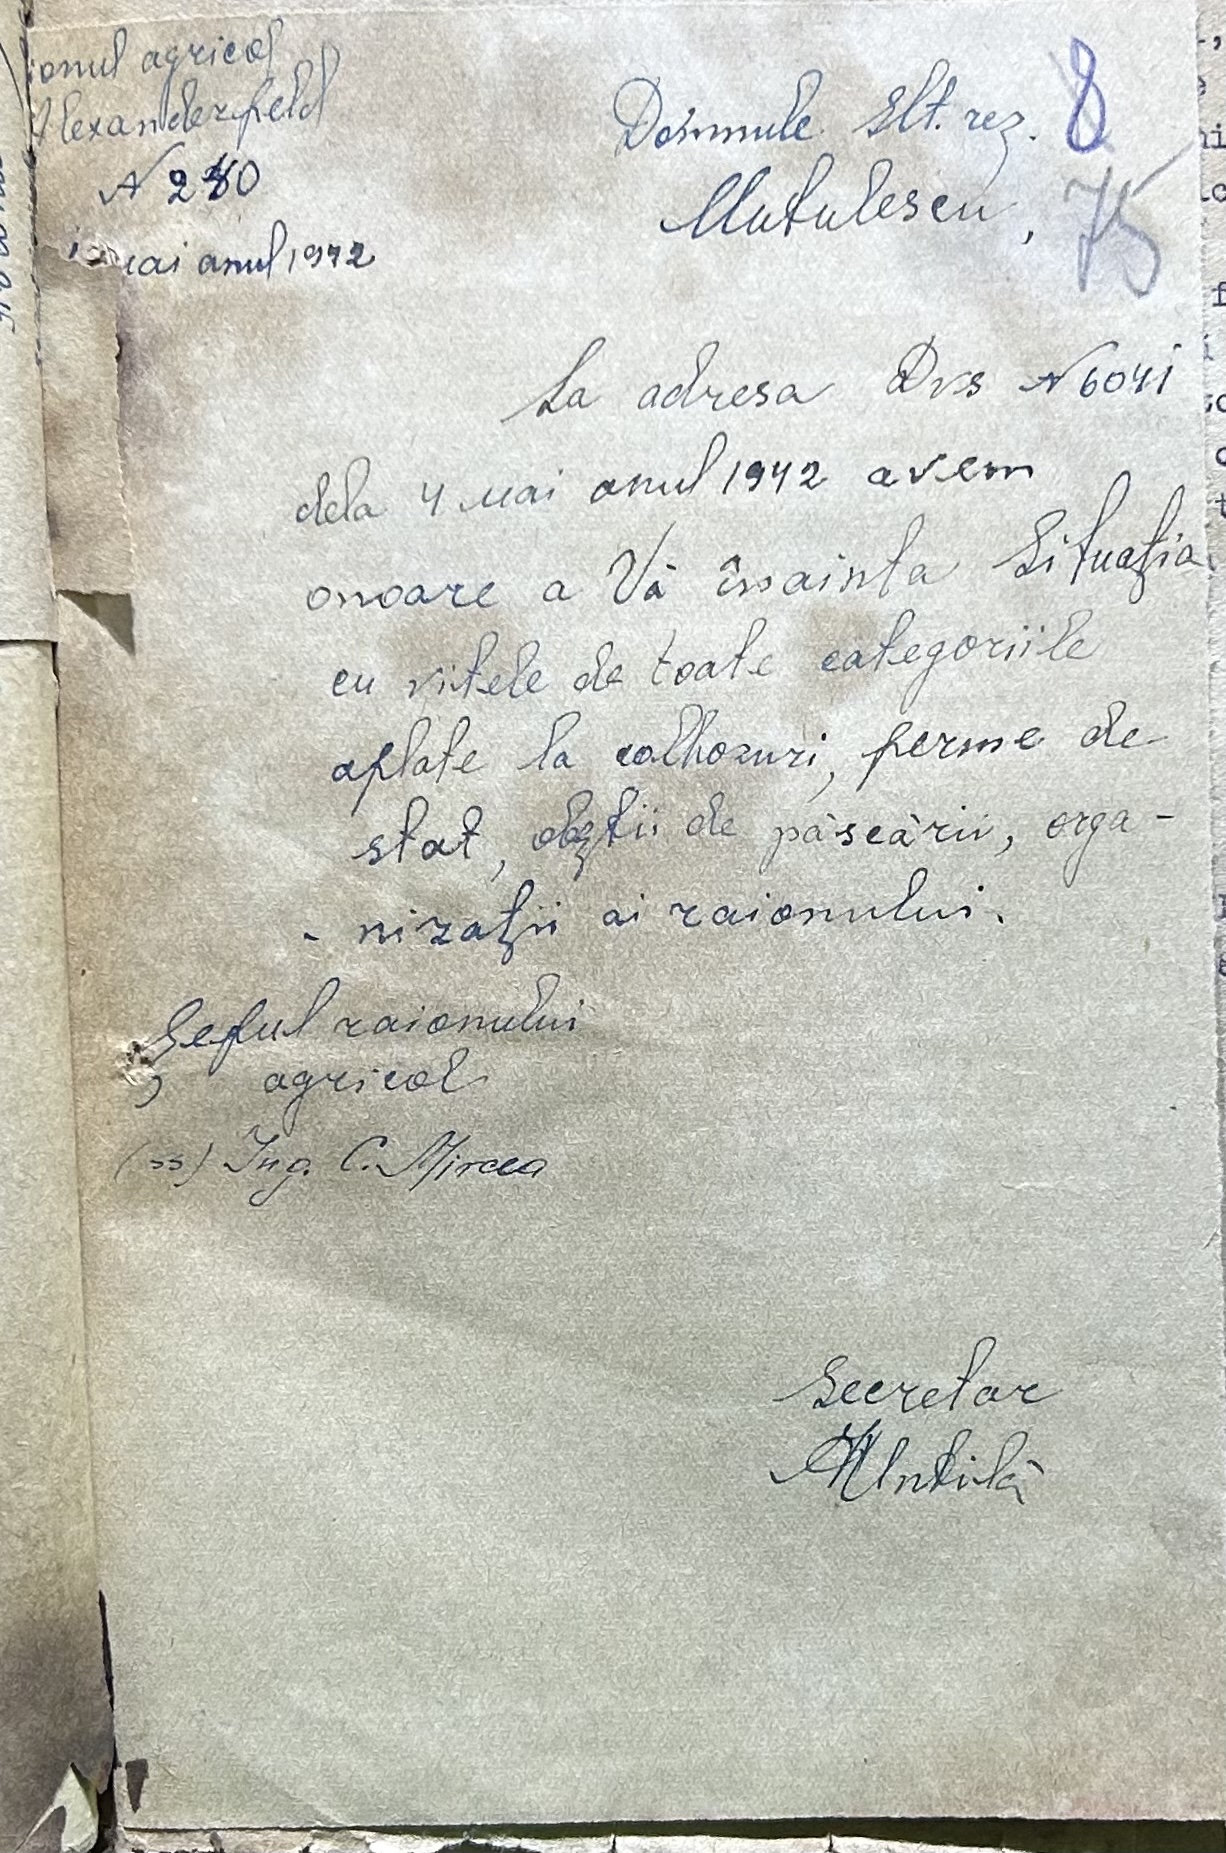 ionul agricol
Alexanderfeld
N 280
mai anul 1942
Domnule Slt. rez.
8
Mutulescu,
75
La adresa Dvs N 6041
dela 4 mai anul 1942 avem
onoare a Vă înainta Situaţia
cu vitele de toate categoriile
aflate la colhozuri, ferme de
stat, obştii de păscării, orga-
- nizaţii ai raionului.
Şeful raionului
agricol
(ss) Ing. C. Mircea
Secretar